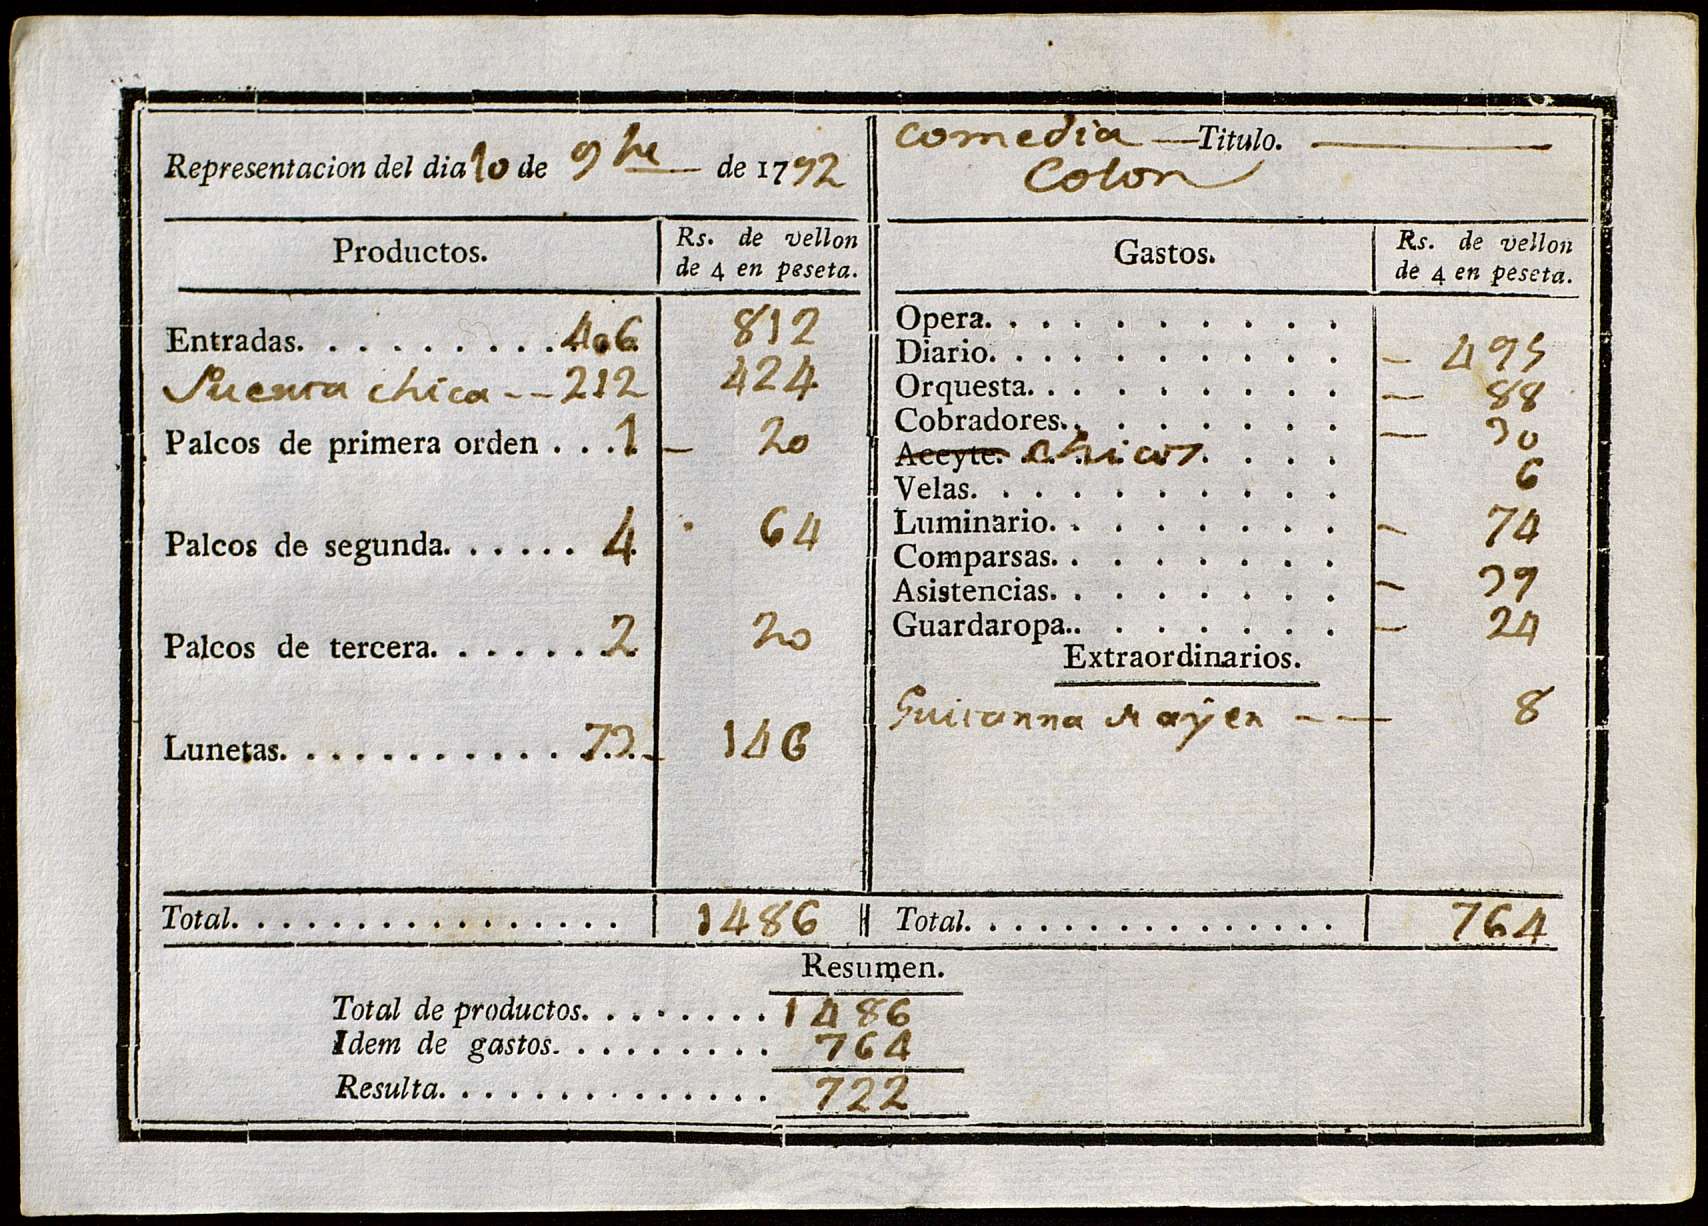 Representacion del dia 10 de 9bre de 1792
Comedia — Titulo.
Colon
Productos. Rs. de vellon de 4 en peseta.
Entradas. 406 812
Puerta chica -- 212 424
Palcos de primera orden . . . 1 — 20
Palcos de segunda. . . . . . 4 64
Palcos de tercera. . . . . . 2 20
Lunetas. . . . . . . . . . . . 73 146
Total. . . . . . . . . . . . . . . . 1486
Gastos. Rs. de vellon de 4 en peseta.
Opera. . . . . . . . . .
Diario. . . . . . . . . . — 495
Orquesta. . . . . . . . . — 88
Cobradores. . . . . . . . — 30
Aceyte. chicos . . . . 6
Velas. . . . . . . . . .
Luminario. . . . . . . . — 74
Comparsas. . . . . . . .
Asistencias. . . . . . . . — 39
Guardaropa. . . . . . . . — 24
Extraordinarios.
Guitarra — — 8
Total. . . . . . . . . . . . . . . . 764
Resumen.
Total de productos. . . . . . . . 1486
Idem de gastos. . . . . . . . . 764
Resulta. . . . . . . . . . . . . . 722